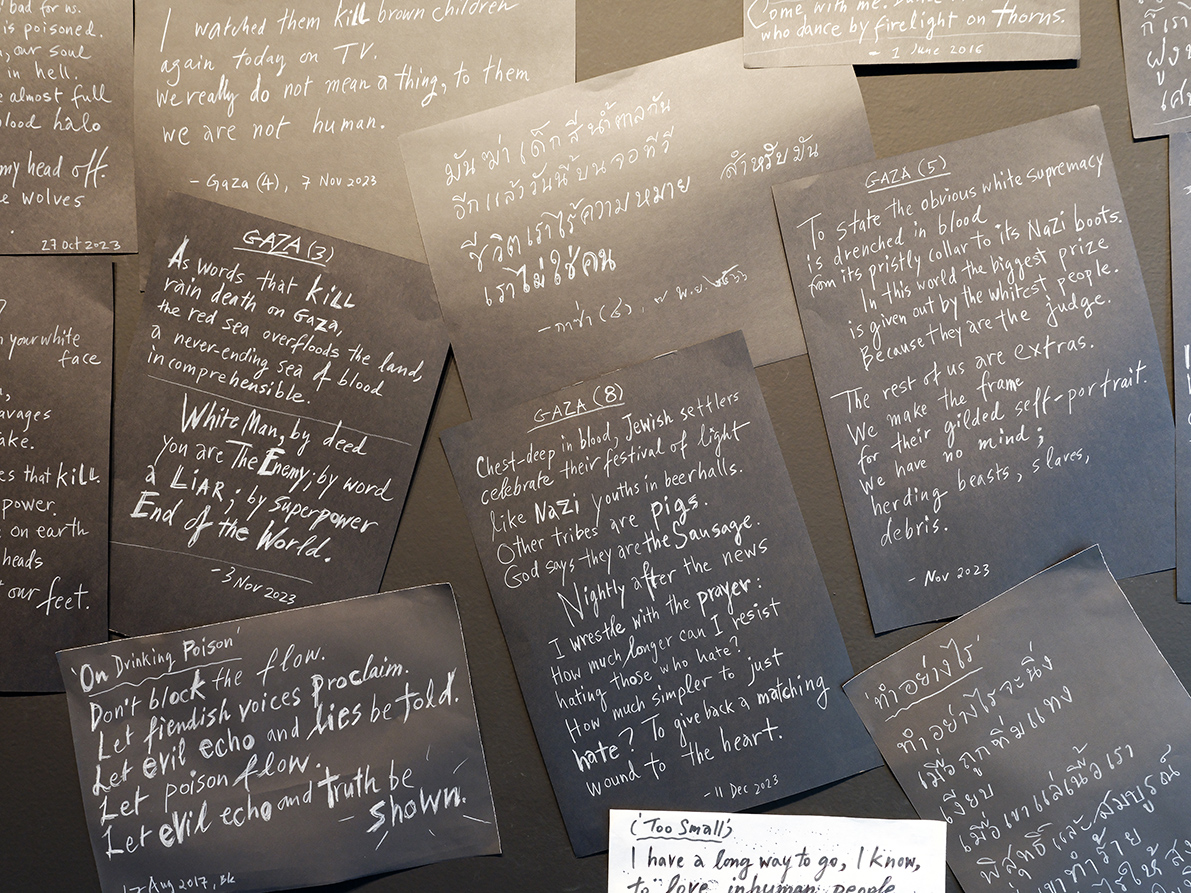 bad for us.
is poisoned.
our soul
in hell.
almost full
blood halo
my head off.
wolves
27 Oct 2023
I watched them kill brown children
again today on TV.
We really do not mean a thing, to them
we are not human.
- Gaza (4), 7 Nov 2023
Come with me.
who dance by firelight on Thorns.
- 1 June 2016
มันฆ่าเด็กสีน้ำตาลกัน
อีกแล้ววันนี้บนจอทีวี
ชีวิตเราไร้ความหมาย สำหรับมัน
เราไม่ใช่คน
- กาซ่า (๔), ๗ พ.ย.
GAZA (5)
To state the obvious white supremacy
is drenched in blood
from its pristly collar to its Nazi boots.
In this world the biggest prize
is given out by the whitest people.
Because they are the judge.
The rest of us are extras.
We make the frame
for their gilded self-portrait.
We have no mind;
herding beasts, slaves,
debris.
- Nov 2023
GAZA (3)
As words that kill
rain death on Gaza,
the red sea overfloods the land,
a never-ending sea of blood
incomprehensible.
White Man, by deed
you are The Enemy; by word
a LIAR; by superpower
End of the World.
- 3 Nov 2023
your white
face
avages
ake.
es that kill
power.
on earth
heads
our feet.
GAZA (8)
Chest-deep in blood, Jewish settlers
celebrate their festival of light
like Nazi youths in beerhalls.
Other tribes are pigs.
God says they are the Sausage.
Nightly after the news
I wrestle with the prayer:
How much longer can I resist
hating those who hate?
How much simpler to just
hate? To give back a matching
wound to the heart.
- 11 Dec 2023
'On Drinking Poison'
Don't block the flow.
Let fiendish voices proclaim.
Let evil echo and lies be told.
Let poison flow.
Let evil echo and truth be
shown.
17 Aug 2017, Bk
'ทำอย่างไร'
ทำอย่างไรจะนิ่ง
เมื่อถูกทิ่มแทง
เงียบ
เมื่อเขาแล่เนื้อเรา
พิสุทธิ์และสมบูรณ์
เขาทำร้าย
('Too Small')
I have a long way to go, I know,
to love inhuman people